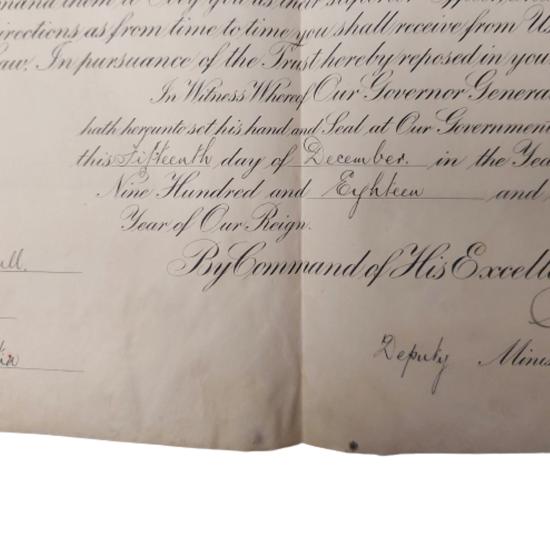 them to Obey you as their Superior Officer
directions as from time to time you shall receive from Us
Law. In pursuance of the Trust hereby reposed in you
In Witness Whereof Our Governor General
hath hereunto set his hand and Seal at Our Government
this Fifteenth day of December. in the Year
Nine Hundred and Eighteen and
Year of Our Reign.
By Command of His Excelle
Deputy Minis